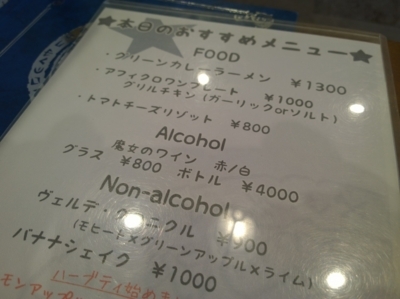 ★本日のおすすめメニュー★
FOOD
・グリーンカレーラーメン ¥1300
・アフィクロワンプレート ¥1000
グリルチキン(ガーリックorソルト)
・トマトチーズリゾット ¥800
Alcohol
魔女のワイン 赤/白
グラス ¥800 ボトル ¥4000
Non-alcohol
クル ¥900
(モヒート×グリーンアップル×ライム)
バナナシェイク ¥1000